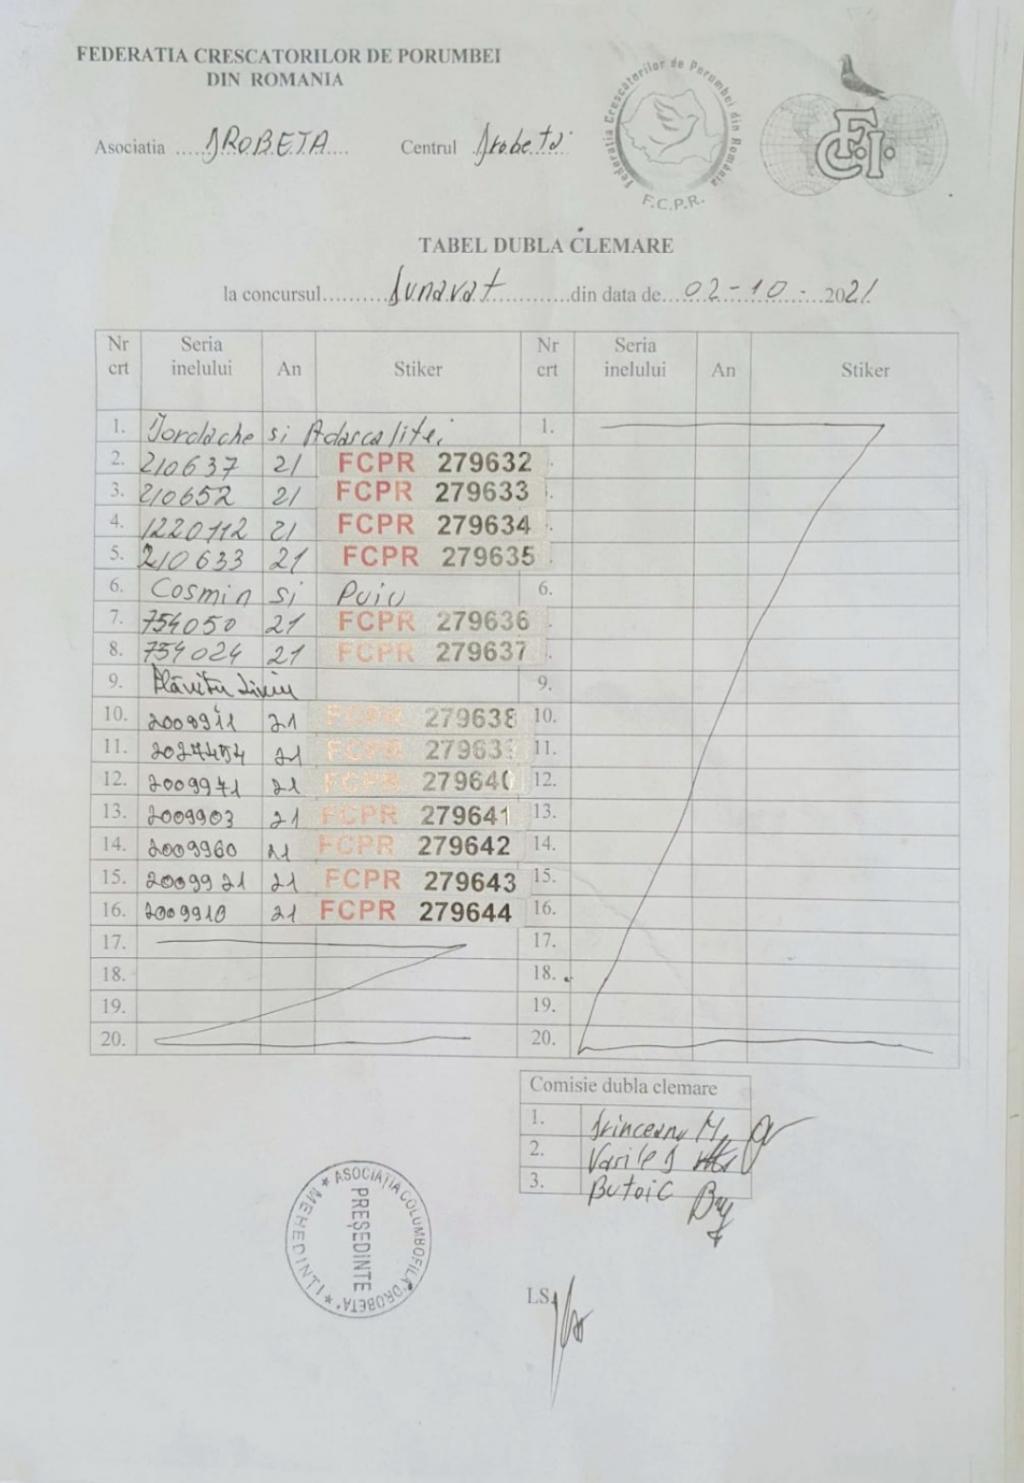 FEDERATIA CRESCATORILOR DE PORUMBEI
DIN ROMANIA
Federatia Crescatorilor de Porumbei din România
F.C.P.R.
F.C.I.
Asociatia ..... DROBETA ..... Centrul Drobeta
TABEL DUBLA CLEMARE
la concursul.......... Dunavat ..........din data de...02-10-...2021
Nr crt Seria inelului An Stiker Nr crt Seria inelului An Stiker
1. Iordache si Adascalitei 1.
2. 210637 21 FCPR 279632
3. 210652 21 FCPR 279633
4. 1220112 21 FCPR 279634
5. 210633 21 FCPR 279635
6. Cosmin si Puiu 6.
7. 754050 21 FCPR 279636
8. 754024 21 FCPR 279637
9. 9.
10. 2009911 21 FCPR 279638 10.
11. 21 FCPR 11.
12. 2009971 21 FCPR 279640 12.
13. 2009903 21 FCPR 279641 13.
14. 2009960 21 FCPR 279642 14.
15. 2009921 21 FCPR 279643 15.
16. 2009910 21 FCPR 279644 16.
17. 17.
18. 18.
19. 19.
20. 20.
Comisie dubla clemare
1.
2. Vasile
3. Butoi C
ASOCIAȚIA COLUMBOFILĂ "DROBETA" * MEHEDINȚI *
PREȘEDINTE
LS